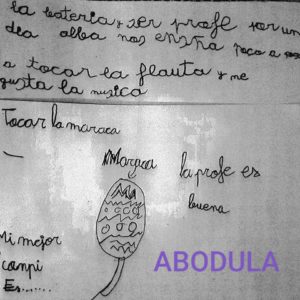 la bateria y ser profe por un
dia alba nos enseña poco a
a tocar la flauta y me
gusta la musica
Tocar la maraca
Maraca
la profe es
buena
Mi mejor
canpi
Es........
ABODULA